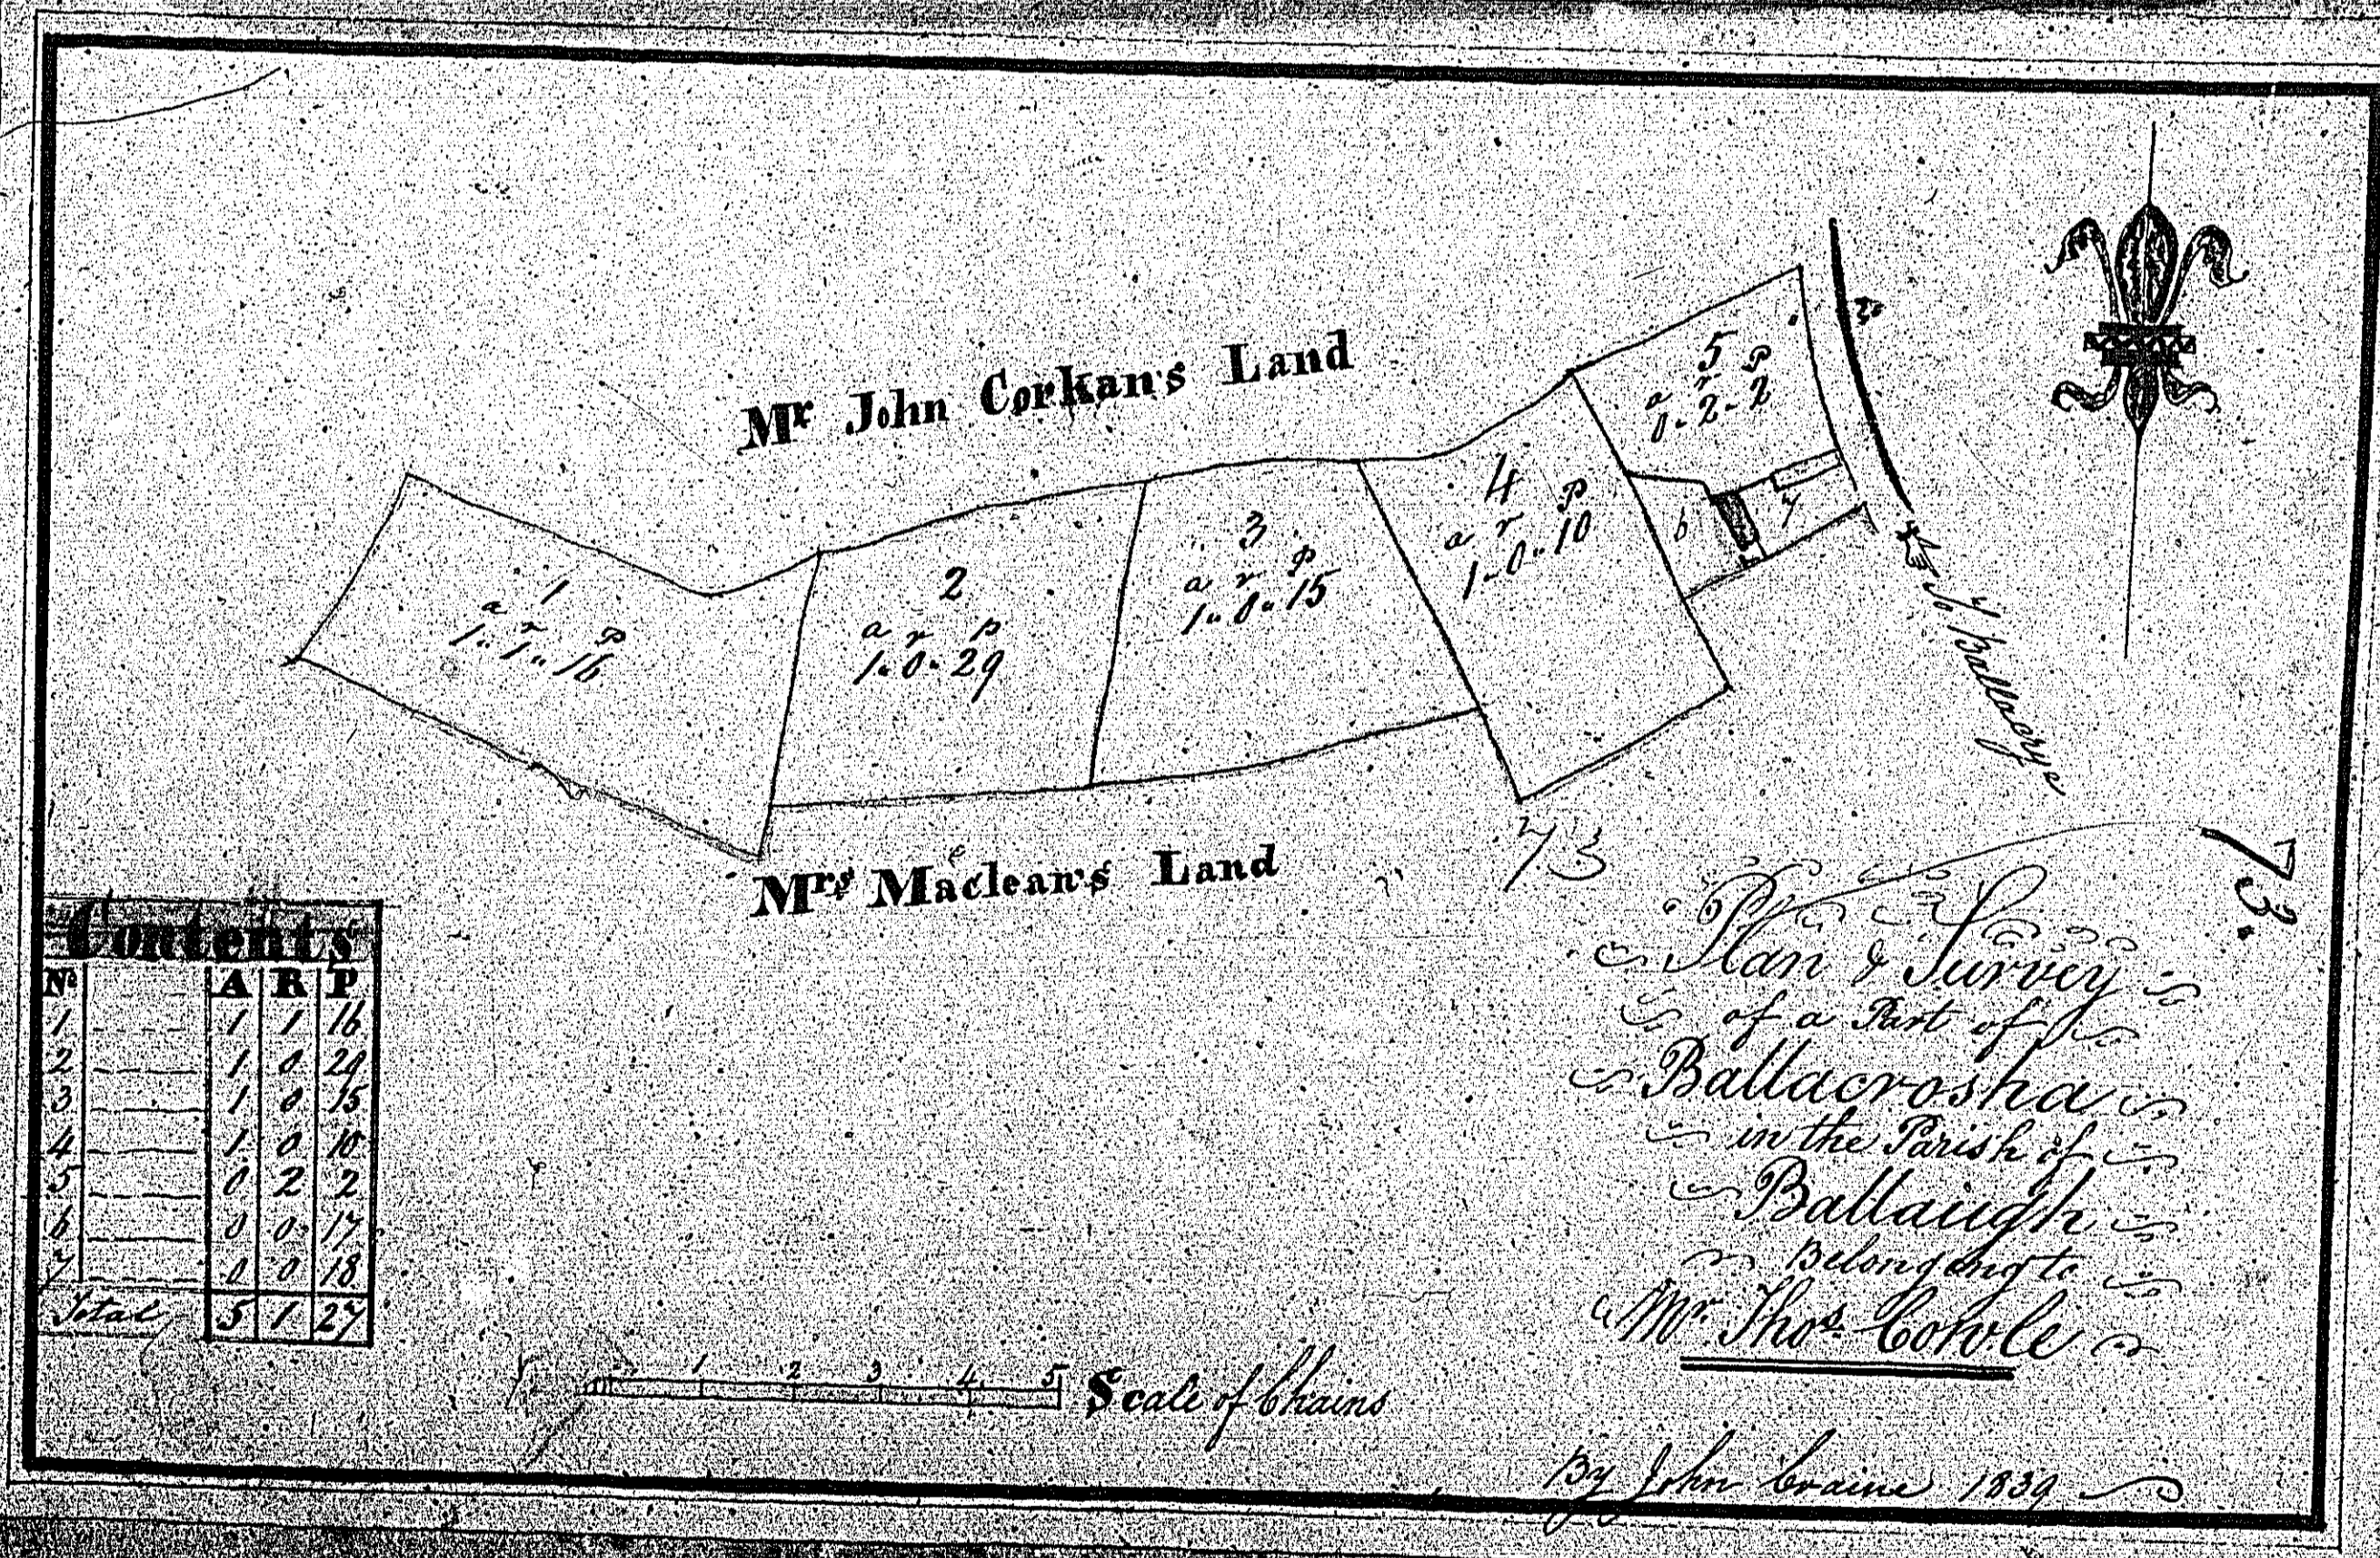 Mr John Corkan's Land
1
a r P
1 " 1 " 16
2
a r p
1 " 0 " 29
3
a r P
1 " 0 " 15
4
a r P
1 - 0 " 10
5
a r P
0 - 2 - 2
6
7
To Ballacrye
Mrs Maclean's Land
73
73.
Contents
No A R P
1 1 1 16
2 1 0 29
3 1 0 15
4 1 0 10
5 0 2 2
6 0 0 17
7 0 0 18
Total 5 1 27
Plan & Survey
of a Part of
Ballacrosha
in the Parish of
Ballaugh
Belonging to
Mr. Thos. Cowle
1 2 3 4 5
Scale of Chains
By John Craine 1839